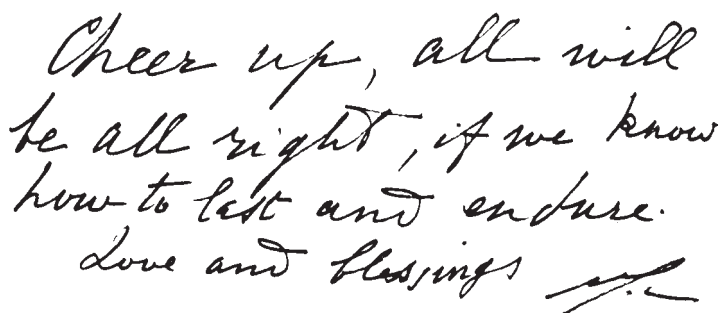 Cheer up, all will
be all right, if we know
how to last and endure.
Love and blessings